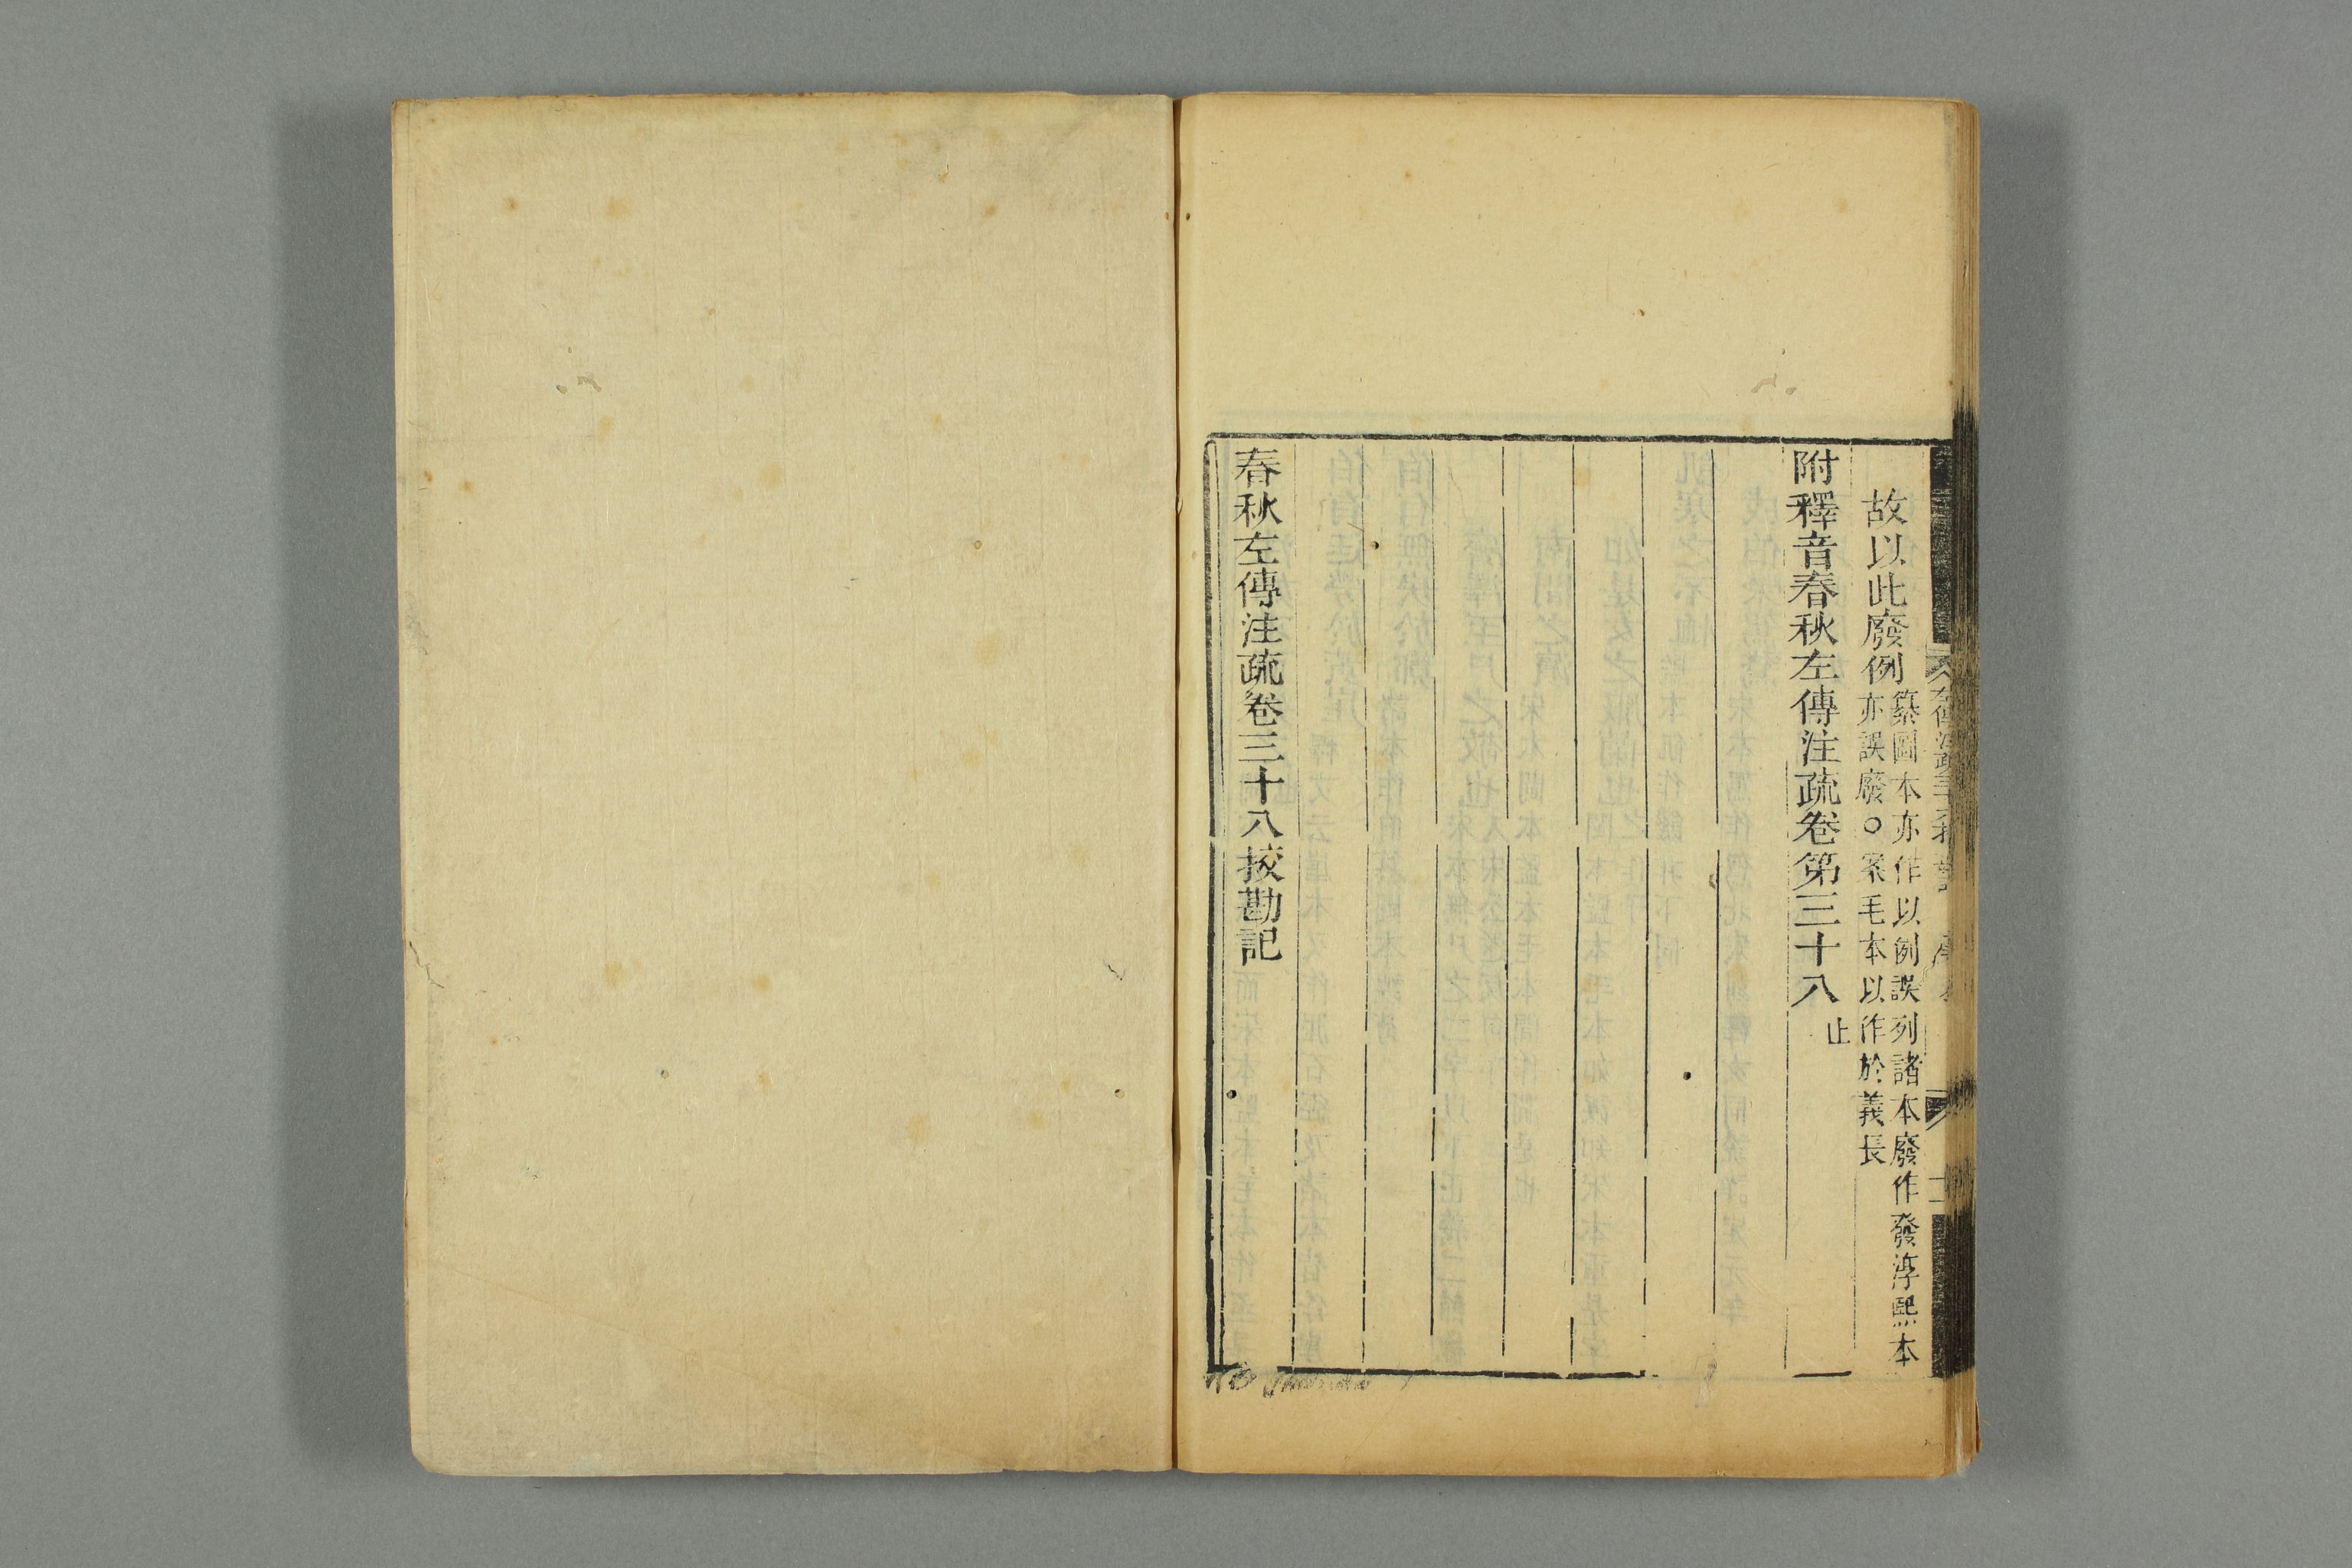 故以此廢例
纂圖本亦作以例誤列諸本廢作發淳熙本
亦誤廢○案毛本以作於義長
附釋音春秋左傳注疏卷第三十八
止
春秋左傳注疏卷三十八挍勘記